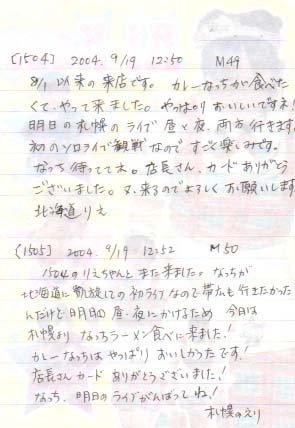 [1504] 2004. 9/19 12:50 M49
8/1 以来の来店です。カレーなっちが食べた
くて、やって来ました。やっぱりおいしいですネ!
明日の札幌のライブ 昼と夜、両方行きます。
初のソロライブ観戦なので すごく楽しみです。
なっち待っててネ。店長さん、カードありがとう
ございました。又、来るのでよろしくお願いします
北海道 りえ
[1505] 2004. 9/19 12:52 M50
1504のりえちゃんとまた来ました。なっちが
北海道に凱旋しての初ライブなので帯広も行きたかった
んだけど 明日の昼・夜にかけるため 今日は
札幌より なっちラーメン食べに来ました!
カレーなっちは やっぱり おいしかったです!
店長さんカード ありがとうございました!
なっち、明日のライブがんばってね!
札幌のえり